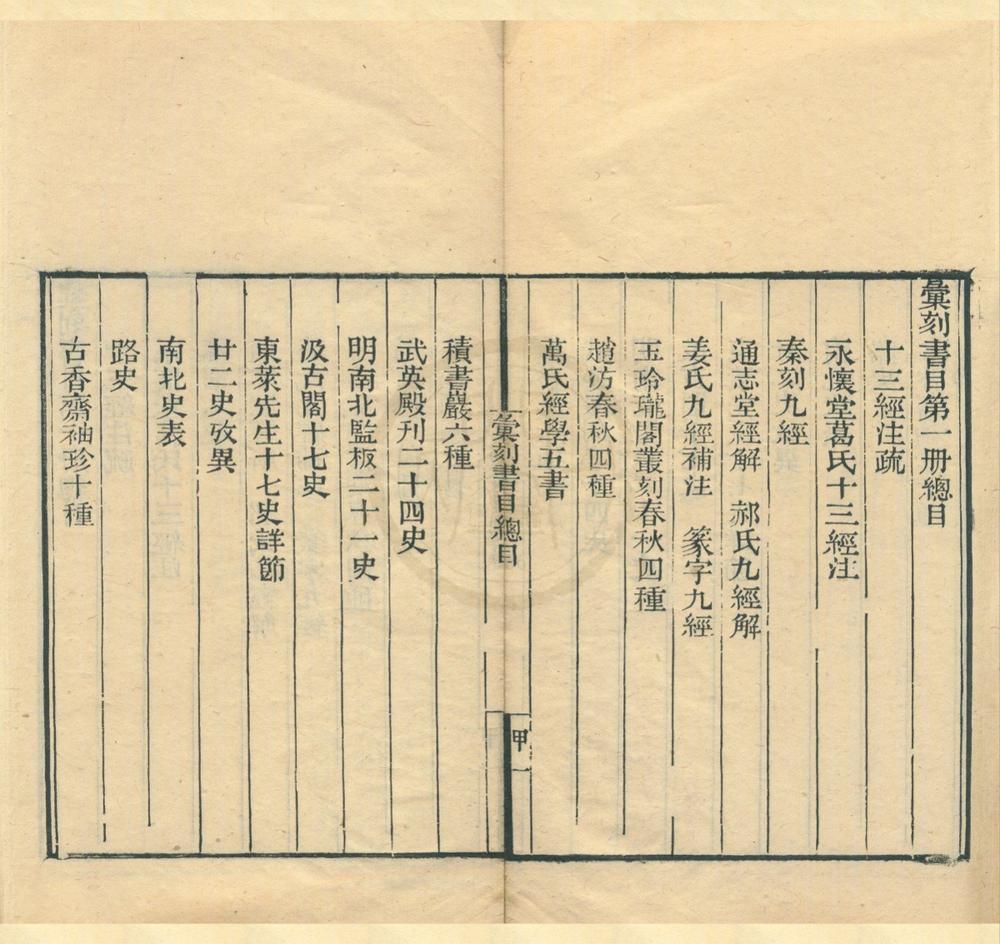 彙刻書目第一册總目
十三經注疏
永懷堂葛氏十三經注
秦刻九經
通志堂經解 郝氏九經解
姜氏九經補注 篆字九經
玉玲瓏閣叢刻春秋四種
趙汸春秋四種
萬氏經學五書
彙刻書目總目
甲一
積書巖六種
武英殿刊二十四史
明南北監板二十一史
汲古閣十七史
東萊先生十七史詳節
廿二史攷異
南北史表
路史
古香齋袖珍十種